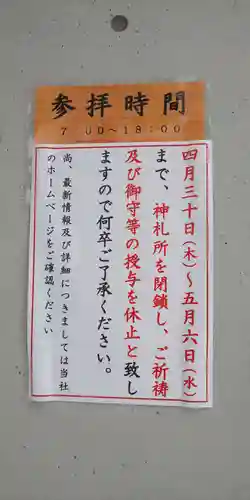 参拝時間
7:00~18:00
四月三十日(木)~五月六日(水)
まで、神札所を閉鎖し、ご祈祷
及び御守等の授与を休止と致し
ますので何卒ご了承ください。
尚、最新情報及び詳細につきましては当社
のホームページをご確認ください